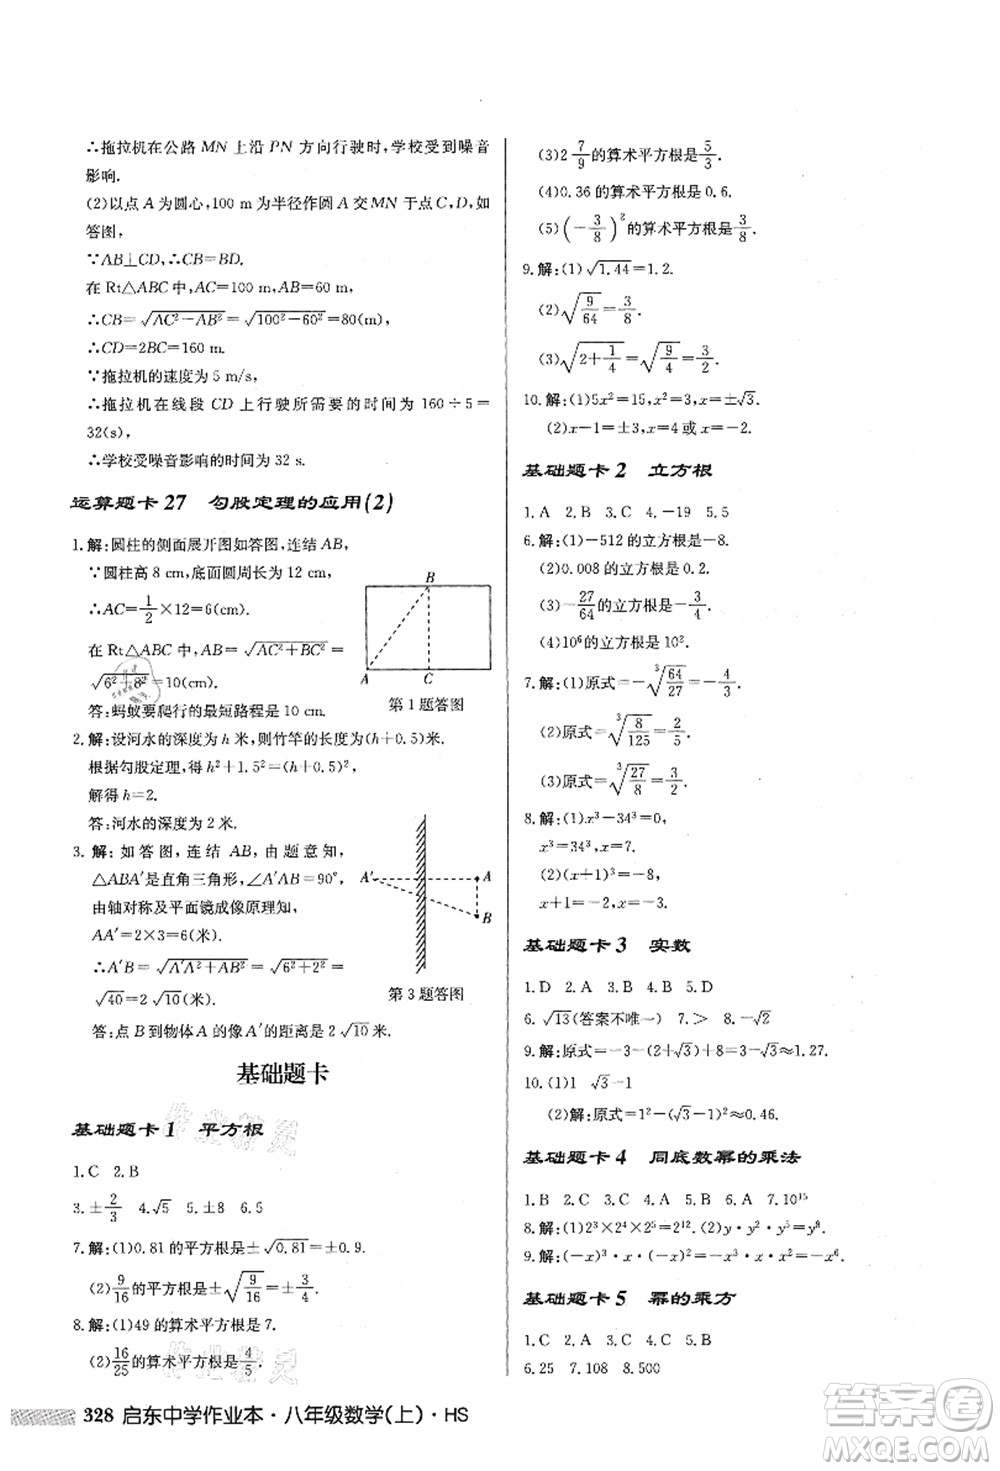 ∴拖拉机在公路 MN 上沿 PN 方向行驶时,学校受到噪音
影响.
(2)以点 A 为圆心,100 m 为半径作圆 A 交 MN 于点 C,D,如
答图,
∵AB⊥CD,∴CB=BD.
在 Rt△ABC 中,AC=100 m,AB=60 m,
∴CB=√(AC²-AB²)=√(100²-60²)=80(m),
∴CD=2BC=160 m.
∵拖拉机的速度为 5 m/s,
∴拖拉机在线段 CD 上行驶所需要的时间为 160÷5=
32(s),
∴学校受噪音影响的时间为 32 s.
运算题卡 27 勾股定理的应用(2)
1.解:圆柱的侧面展开图如答图,连结 AB,
∵圆柱高 8 cm,底面圆周长为 12 cm,
∴AC=1/2×12=6(cm).
在 Rt△ABC 中,AB=√(AC²+BC²)=
√(6²+8²)=10(cm).
答:蚂蚁要爬行的最短路程是 10 cm.
B
A C
第 1 题答图
2.解:设河水的深度为 h 米,则竹竿的长度为(h+0.5)米.
根据勾股定理,得 h²+1.5²=(h+0.5)²,
解得 h=2.
答:河水的深度为 2 米.
3.解:如答图,连结 AB,由题意知,
△ABA′是直角三角形,∠A′AB=90°,
由轴对称及平面镜成像原理知,
AA′=2×3=6(米).
∴A′B=√(A′A²+AB²)=√(6²+2²)=
√40=2√10(米).
答:点 B 到物体 A 的像 A′的距离是 2√10米.
A′ A
B
第 3 题答图
基础题卡
基础题卡 1 平方根
1.C 2.B
3.±2/3 4.√5 5.±5 6.5
7.解:(1)0.81 的平方根是±√0.81=±0.9.
(2)9/16的平方根是±√(9/16)=±3/4.
8.解:(1)49 的算术平方根是 7.
(2)16/25的算术平方根是4/5.
(3)2 7/9的算术平方根是5/3.
(4)0.36 的算术平方根是 0.6.
(5)(-3/8)²的算术平方根是3/8.
9.解:(1)√1.44=1.2.
(2)√(9/64)=3/8.
(3)√(2+1/4)=√(9/4)=3/2.
10.解:(1)5x²=15,x²=3,x=±√3.
(2)x-1=±3,x=4 或 x=-2.
基础题卡 2 立方根
1.A 2.B 3.C 4.-19 5.5
6.解:(1)-512 的立方根是-8.
(2)0.008 的立方根是 0.2.
(3)-27/64的立方根是-3/4.
(4)10⁶ 的立方根是 10².
7.解:(1)原式=-∛(64/27)=-4/3.
(2)原式=∛(8/125)=2/5.
(3)原式=∛(27/8)=3/2.
8.解:(1)x³-34³=0,
x³=34³,x=7.
(2)(x+1)³=-8,
x+1=-2,x=-3.
基础题卡 3 实数
1.D 2.A 3.C 4.C 5.B
6.√13(答案不唯一) 7.> 8.-√2
9.解:原式=-3-(2+√3)+8=3-√3≈1.27.
10.(1)1 √3-1
(2)解:原式=1²-(√3-1)²≈0.46.
基础题卡 4 同底数幂的乘法
1.B 2.C 3.D 4.B 5.A 6.A 7.10¹⁵
8.解:(1)2³×2⁴×2⁵=2¹².(2)y·y²·y⁵=y⁸.
9.解:(-x)³·x·(-x)²=-x³·x·x²=-x⁶.
基础题卡 5 幂的乘方
1.C 2.D 3.C 4.A 5.B
6.25 7.108 8.500
328 启东中学作业本·八年级数学(上)·HS
作业精灵
作业精灵
答案圈
MXQE.COM